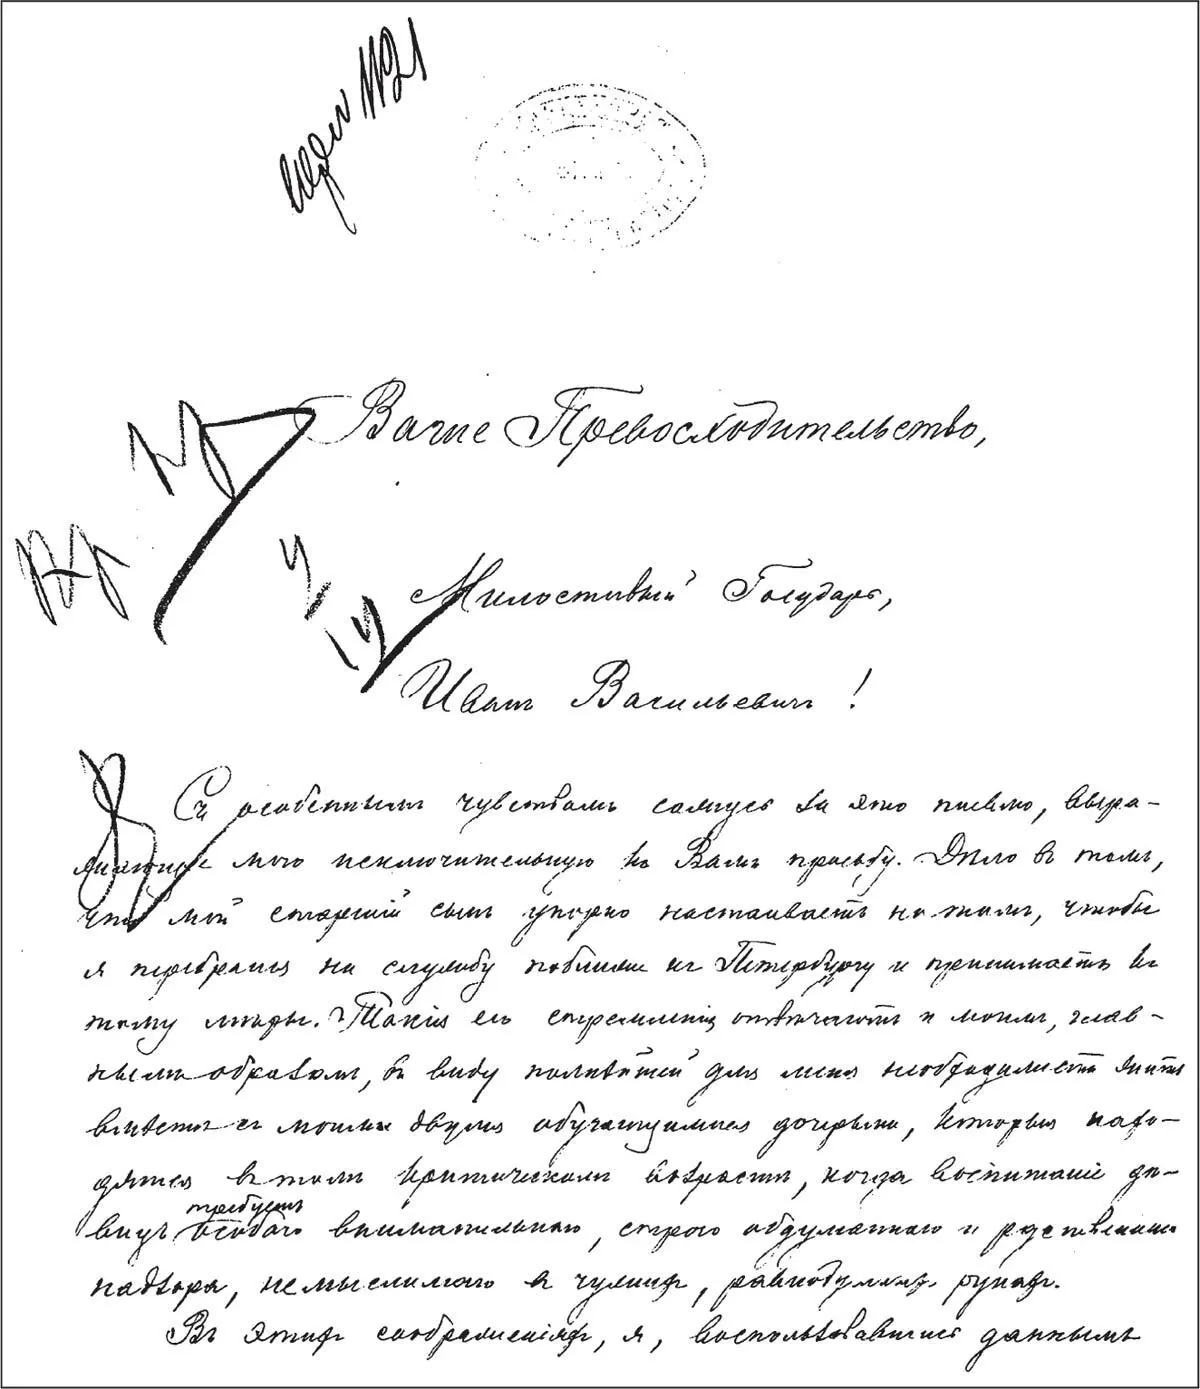 Ваше Превосходительство,
Милостивый Государь,
Иванъ Васильевичъ!
Съ особеннымъ чувствомъ сажусь за это письмо, выра-
жающее мою исключительную къ Вамъ просьбу. Дѣло въ томъ,
что мой старшій сынъ упорно настаиваетъ на томъ, чтобы
я перебрался на службу поближе къ Петербургу и принимаетъ къ
тому мѣры. Такія его стремленія отвѣчаютъ и моимъ, глав-
нымъ образомъ, въ виду полнѣйшей для меня необходимости жить
вмѣстѣ съ моими двумя обучающимися дочерьми, которыя нахо-
дятся въ томъ критическомъ возрастѣ, когда воспитаніе дѣ-
требуетъ
вицъ особаго внимательнаго, строго обдуманнаго и родственнаго
надзора, немыслимаго въ чужихъ, равнодушныхъ рукахъ.
Въ этихъ соображеніяхъ, я, воспользовавшись даннымъ